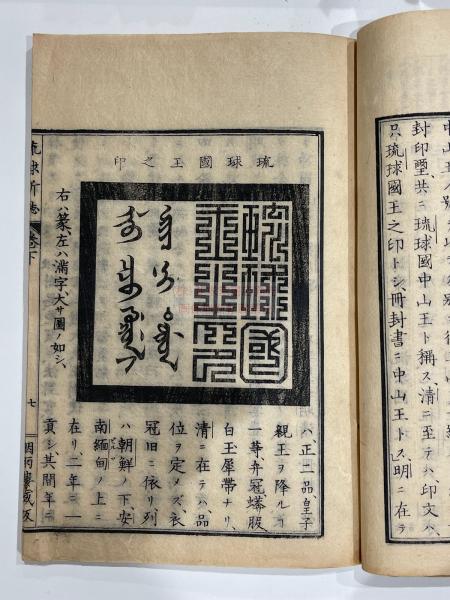 封印璽共ニ琉球國中山王ト稱ス、清ニ至テハ、印文ハ、
只琉球國王之印トシ、冊封書ニ中山王トス、明ニ在テ
琉球國王之印
琉球國
王之印
右ハ篆、左ハ滿字大サ圖ノ如シ、
ハ、正二品、皇子
親王ヲ降ル
一等弁冠蟒服
白玉犀帶ナリ、
清ニ在テハ、品
位ヲ定メズ、衣
冠旧ニ依リ列
ハ朝鮮ノ下、安
南緬甸ノ上ニ
在リ、二年ニ一
貢シ、其間年ニ
琉球新誌 卷下
七